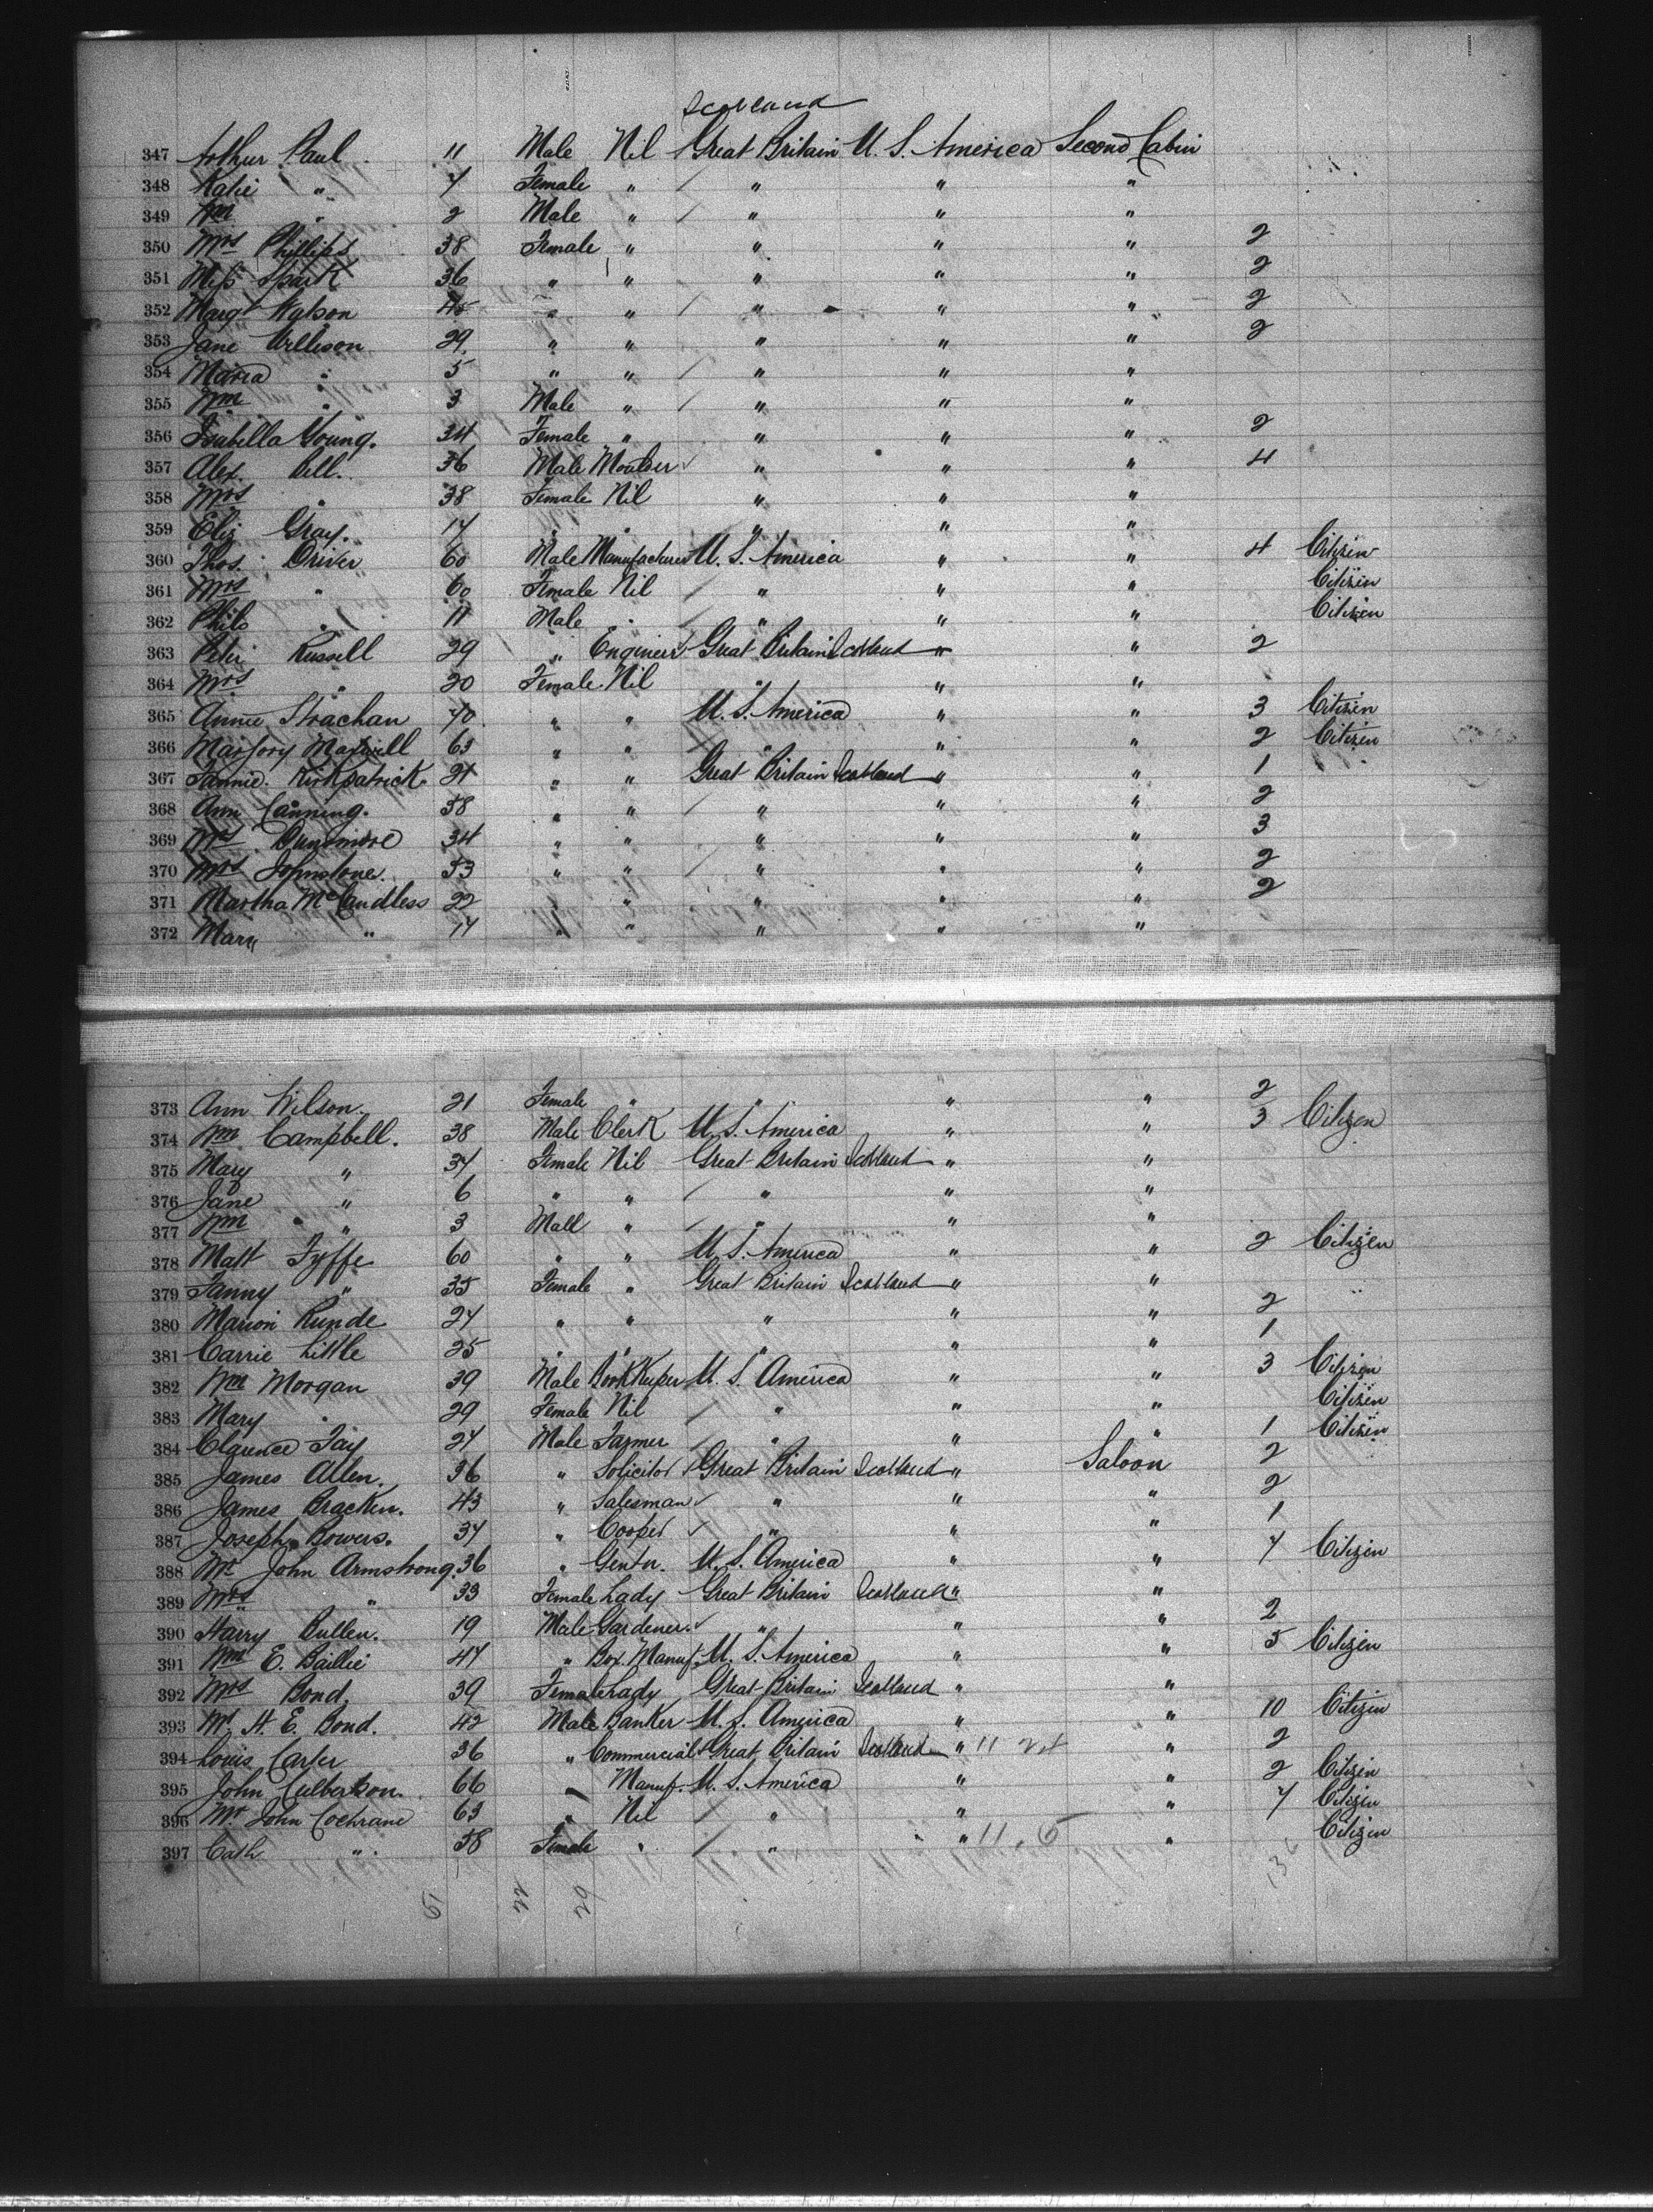 Scotland
347 Arthur Paul 11 Male Nil Great Britain U. S. America Second Cabin
348 Katie " 7 Female " " " "
349 Wm " 2 Male " " " "
350 Mrs Phillips 38 Female " " " " 2
351 Miss Spark 36 " " " " " 2
352 Margt Watson 45 " " " " " 2
353 Jane Willison 29 " " " " " 2
354 Maria " 5 " " " " "
355 Wm " 3 Male " " " "
356 Isabella Young. 34 Female " " " " 2
357 Alex. Bell. 36 Male Moulder " " " 4
358 Mrs " 38 Female Nil " " "
359 Eliz Gray. 17 " " " " "
360 Thos. Driver 60 Male Manufacturer U. S. America " " 4 Citizen
361 Mrs " 60 Female Nil " " " Citizen
362 Philo " 11 Male " " " " Citizen
363 Peter Russell 29 " Engineer Great Britain Scotland " " 2
364 Mrs " 20 Female Nil " " "
365 Annie Strachan 40 " " U. S. America " " 3 Citizen
366 Marjory Maxwell 63 " " " " " 2 Citizen
367 Fannie Kirkpatrick 21 " " Great Britain Scotland " " 1
368 Ann Canning. 58 " " " " " 2
369 Mrs Dunsmore 34 " " " " " 3
370 Mrs Johnstone. 53 " " " " " 2
371 Martha McCandless 22 " " " " " 2
372 Mary " 17 " " " " "
373 Ann Wilson. 21 Female " " " " 2
374 Wm Campbell. 38 Male Clerk U. S. America " " 3 Citizen
375 Mary " 37 Female Nil Great Britain Scotland " "
376 Jane " 6 " " " " "
377 Wm " 3 Male " " " "
378 Matt Fyffe 60 " " U. S. America " " 2 Citizen
379 Fanny " 35 Female " Great Britain Scotland " "
380 Marion Runde 27 " " " " " 2
381 Carrie Little 25 " " " " " 1
382 Wm Morgan 39 Male BookKeeper U. S. America " " 3 Citizen
383 Mary " 29 Female Nil " " " Citizen
384 Clarence Fay 27 Male Farmer " " " 1 Citizen
385 James Allen. 36 " Solicitor Great Britain Scotland " Saloon 2
386 James Bracken. 43 " Salesman " " " 2
387 Joseph Bowers. 37 " Cooper " " " 1
388 Mr John Armstrong. 36 " Gentn. U. S. America " " 7 Citizen
389 Mrs " 33 Female Lady Great Britain Scotland " "
390 Harry Bullen. 19 Male Gardener. " " " 2
391 Wm E. Baillie 47 " Box Manuf. U. S. America " " 5 Citizen
392 Mrs Bond. 39 Female Lady Great Britain Scotland " "
393 Mr. H. E. Bond. 42 Male Banker U. S. America " " 10 Citizen
394 Louis Carter 36 " Commercial Great Britain Scotland " " 2
395 John Culbertson. 66 " Manuf. U. S. America " " 2 Citizen
396 Mr. John Cochrane 63 " Nil " " " 7 Citizen
397 Cath " 58 Female " " " " Citizen